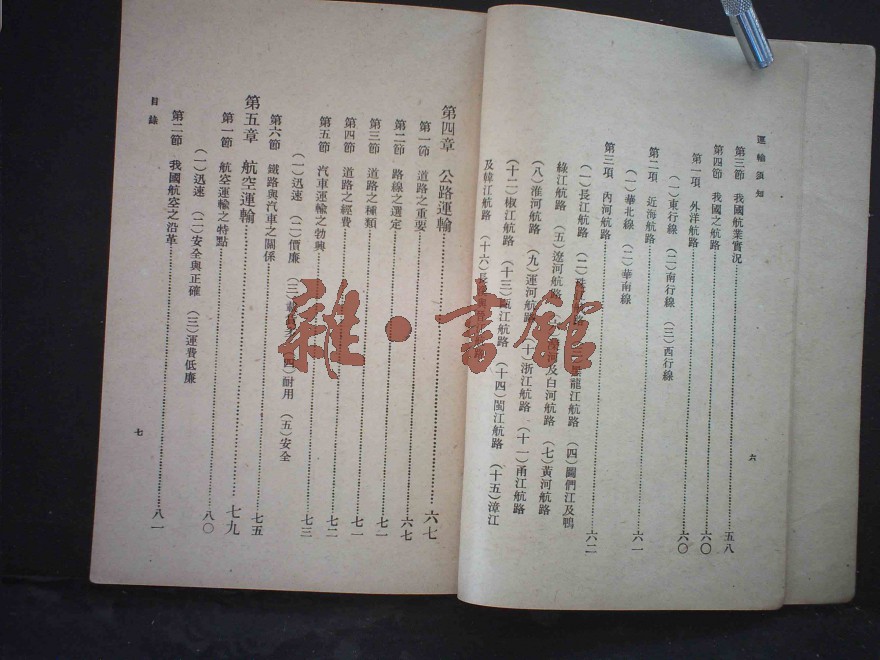 運輸須知
第三節 我國航業實況……五八
第四節 我國之航路……六〇
第一項 外洋航路……六〇
(一)東行線 (二)南行線 (三)西行線
第二項 近海航路……六一
(一)華北線 (二)華南線
第三項 內河航路……六二
(一)長江航路 (二)珠 龍江航路 (四)圖們江及鴨
綠江航路 (五)遼河航路 河及白河航路 (七)黃河航路
(八)淮河航路 (九)運河航路 (十)浙江航路 (十一)甬江航路
(十二)椒江航路 (十三)甌江航路 (十四)閩江航路 (十五)漳江
及韓江航路 (十六)長
六
第四章 公路運輸……六七
第一節 道路之重要……六七
第二節 路線之選定……七一
第三節 道路之種類……七一
第四節 道路之經費……七二
第五節 汽車運輸之勃興……七三
(一)迅速 (二)價廉 (三) (四)耐用 (五)安全
第六節 鐵路與汽車之關係……七五
第五章 航空運輸……七九
第一節 航空運輸之特點……八〇
(一)迅速 (二)安全與正確 (三)運費低廉
第二節 我國航空之沿革……八一
目錄
七
雜·書館